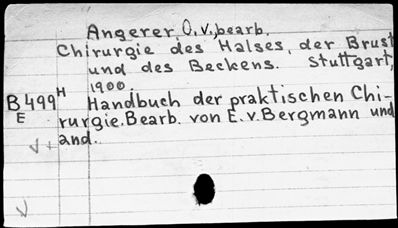 Angerer, O. v., bearb.
Chirurgie des Halses, der Brust
und des Beckens. Stuttgart,
1900.
B499 H Handbuch der praktischen Chi-
E rurgie. Bearb. von E. v. Bergmann und
and.